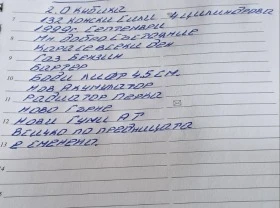 2.0 кубика
7 132 конски сили 4 цилиндрова
1999г. септември
8 Мн. добро състояние
9 Каросевски ден
Газ бензин
10 Бартер
Боди лифт 45 см.
10 Нов акумулатор
11 Радиатор перка
Ново гърне
12 Нови гуми АТ
Всичко по предницата
13 е сменено.
14